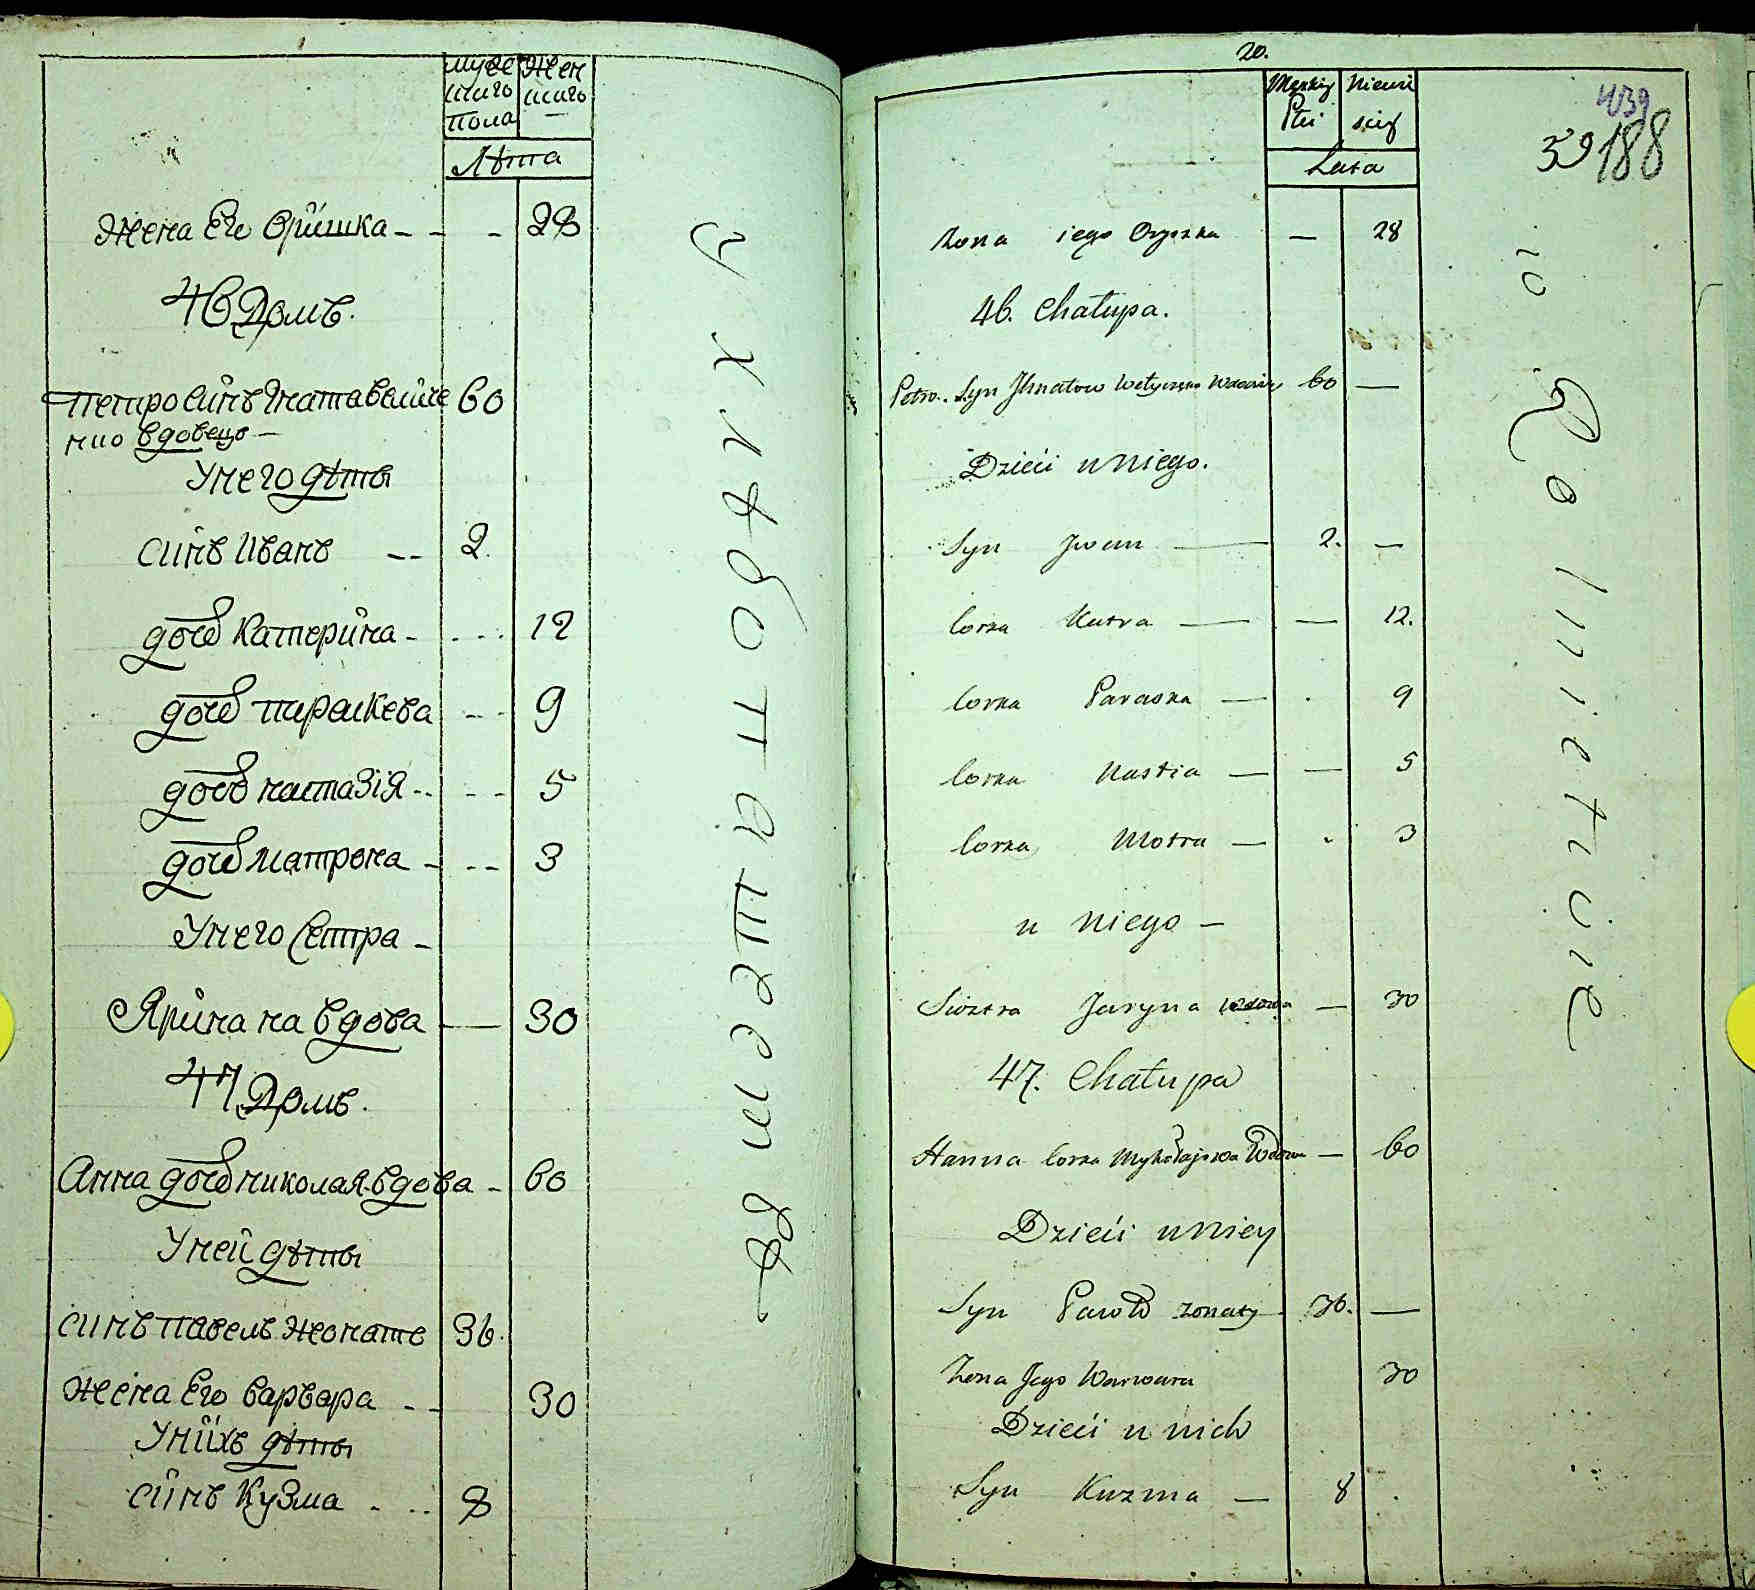 мужескаго пола
женскаго
Лѣта
жена Его Оришка - - - 28
46 Домъ.
Петро синъ Игната Величк 60
нио вдовецъ -
У него дѣты
синъ Иванъ -- 2.
дочь Катерина - - - - 12
дочь параскева - - 9
дочь настазія - - - - 5
дочь матрона - - - 3
У него Сестра -
Ярина на вдова - 30
47 Домъ.
Анна дочь николая вдова - 60
У ней дѣты
синъ павелъ жонатъ 36.
жена Его варвара - - 30
У нихъ дѣты
синъ Кузма - - - 8
20.
Męzkiy Płci
Niewieściey
Lata
439
39 188
Zona iego Oryszka — 28
46. Chałupa.
Petro Syn Ihnatow Wdowiec 60 —
Dzieći u Niego.
Syn Iwan — 2. —
Corka Katra — — 12.
Corka Paraska — 9
Corka Nastia — — 5
Corka Motra — 3
u Niego —
Siostra Jaryna wdowa — 30
47. Chałupa
Hanna Corka Mykołajowa Wdowa — 60
Dzieći u Niey
Syn Pawło zonaty 36. —
Zona Jego Warwara 30
Dzieći u nich
Syn Kuzma — 8